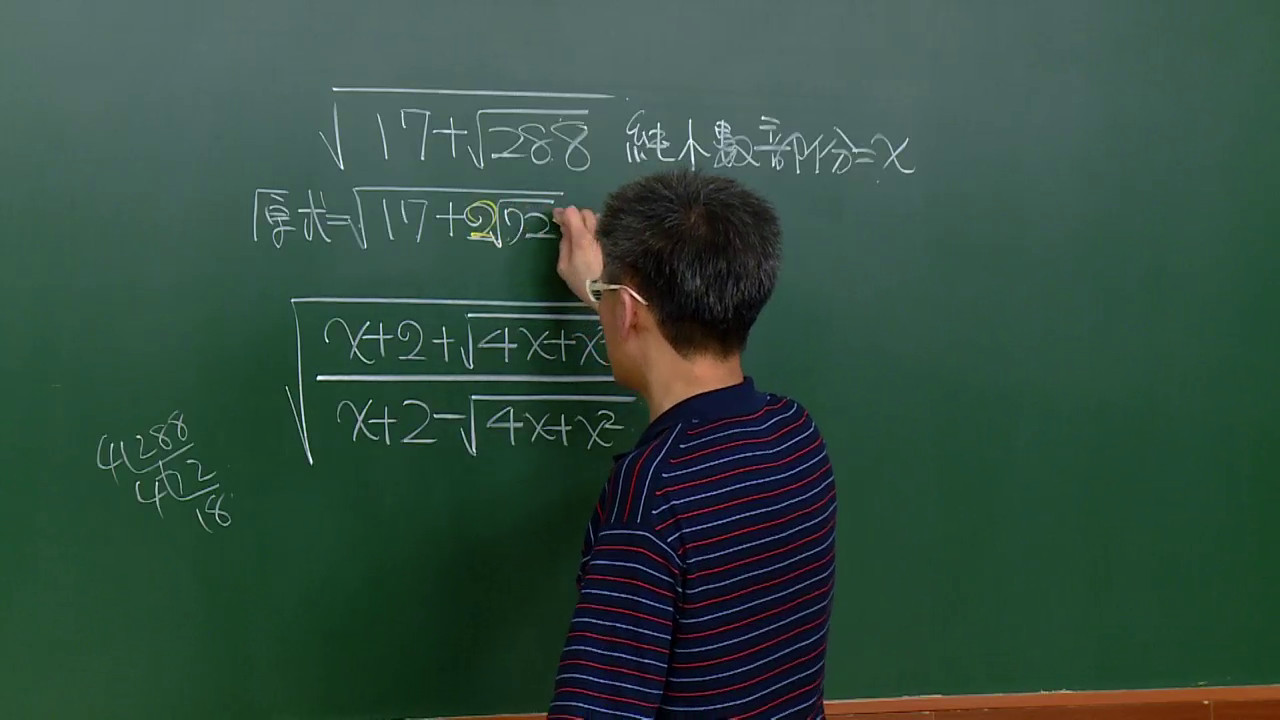 √(17+√288) 純小數部份=x
原式=√(17+2√72
√((x+2+√(4x+x
x+2-√(4x+x²
4 288
4 72
18